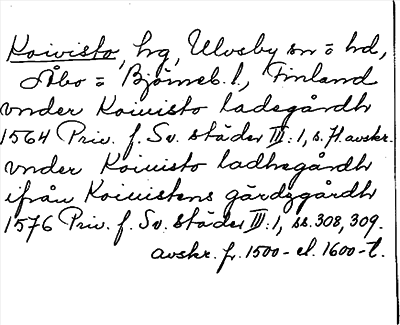 Koivisto, hg, Ulvsby sn o hd,
Åbo o Björneb. l., Finland
vnder Koiuisto ladegårdh
1564 Priv. f. Sv. städer III:1, s. 71 avskr.
vnder Koiuisto ladhegårdh
ifrån Koiuistens gärdzgårdh
1576 Priv. f. Sv. städer III:1, ss. 308, 309.
avskr. fr. 1500- el. 1600-t.